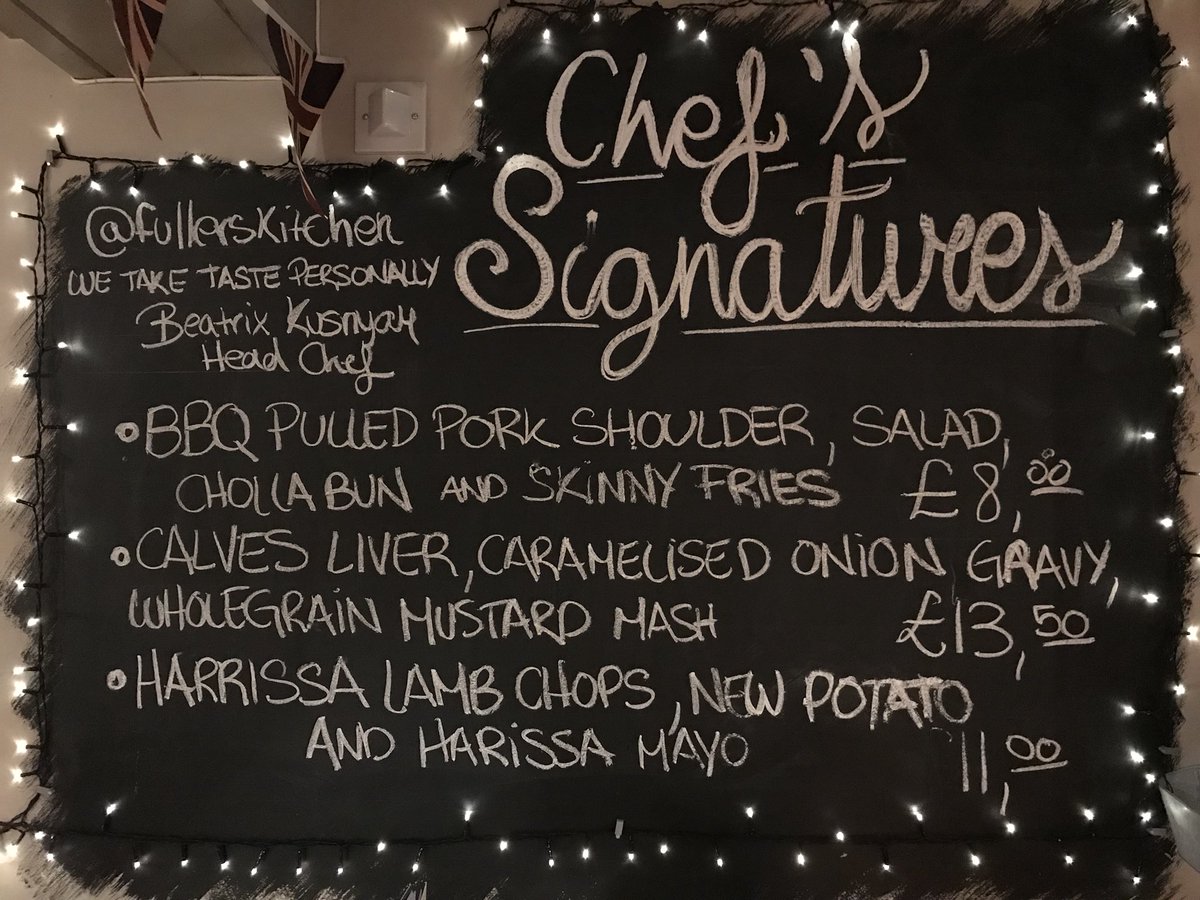 Chef's
Signatures
@fullerskitchen
WE TAKE TASTE PERSONALLY
Beatrix Kusnyar
Head Chef
•BBQ PULLED PORK SHOULDER, SALAD,
CHOLLA BUN AND SKINNY FRIES £8,00
•CALVES LIVER, CARAMELISED ONION GRAVY,
WHOLEGRAIN MUSTARD MASH £13,50
•HARRISSA LAMB CHOPS, NEW POTATO
AND HARISSA MAYO 11,00